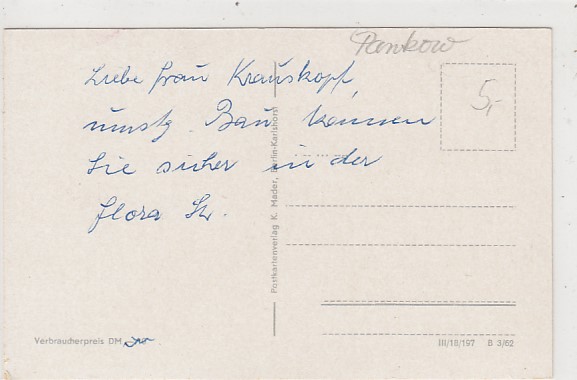 Pankow
5,-
Liebe Frau Krauskopf,
umstg. Bau kommen
Sie sicher in der
Flora Str.
Postkartenverlag K. Mader, Berlin-Karlshorst
Verbraucherpreis DM
III/18/197 B 3/62